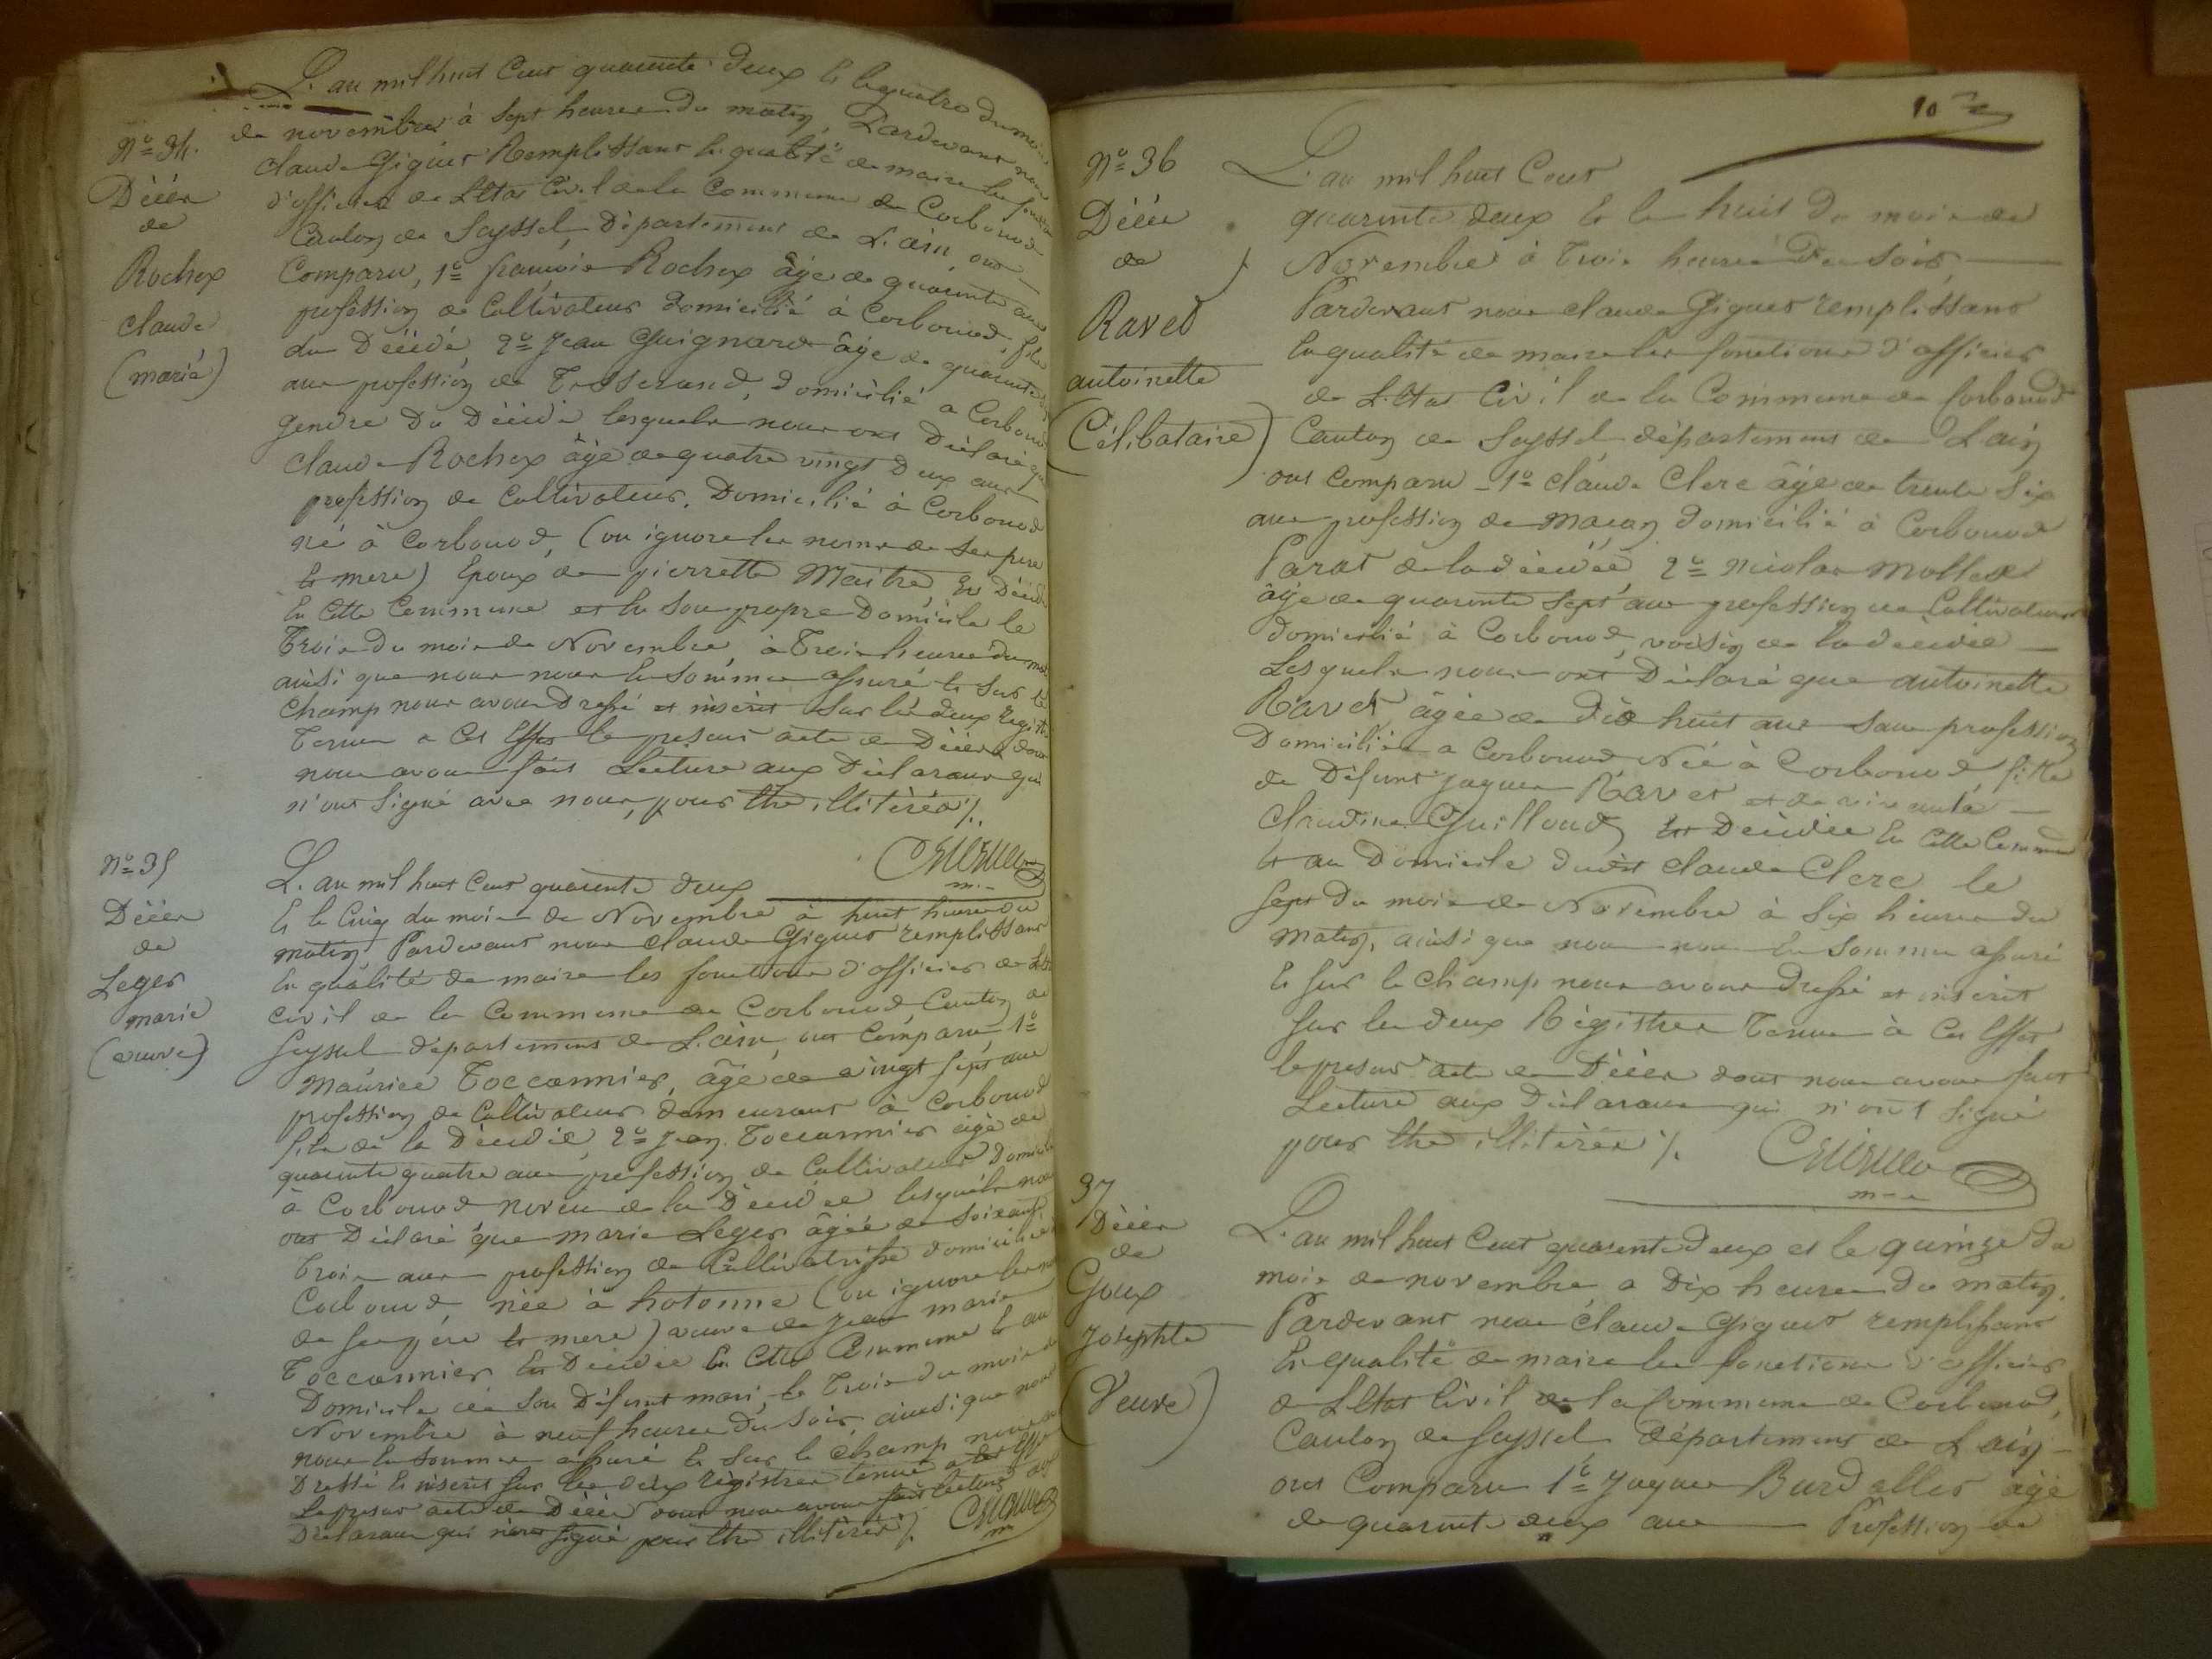 L'an mil huit Cent quarente deux et le quatre du mois
de novembre à sept heures du matin, Pardevant nous
claude Giguet Remplissant En qualité de maire les fonctions
d'officier de L'Etat Civil de la Commune de Corbonod
Canton de Seyssel, Département de L'ain, ont
Comparu, 1º françois Rochex âgé de quarente ans
profession de Cultivateur domicilié à Corbonod, fils
du Décédé, 2º Jean Guignard âgé de quarente
ans profession de Tisserand, domicilié a Corbonod
gendre du Décédé lesquels nous ont Déclaré que
Claude Rochex âgé de quatre vingt deux ans
profession de Cultivateur, Domicilié à Corbonod
né à Corbonod, (on ignore les noms de ses pere
et mere) Epoux de pierrette Maitre, Est Décédé
En Cette Commune et En son propre Domicile le
Trois du mois de Novembre, à Trois heures du
ainsi que nous nous En sommes assuré et sur le
champ nous avons Dressé et inscrit sur les deux registres
Tenus a Cet Effet le present acte de Décès dont
nous avons fait Lecture aux Déclarants qui
n'ont Signé avec nous, pour être illitérés ./.
Nº 34.
Décès
de
Rochex
claude
(marié)
Nº 35
Décès
de
Leger
marie
(veuve)
L'an mil huit Cent quarente deux
Et le Cinq du mois de Novembre à huit heures du
matin, Pardevant nous claude Giguet remplissant
En qualité de maire les fonctions d'officier de L'Etat
civil de la Commune de Corbonod, Canton de
Seyssel département de L'ain, ont Comparu, 1º
Maurice Toccannier, âgé de vingt sept ans
profession de Cultivateur demeurant à Corbonod
fils de la Décédée, 2º Jean Toccannier âgé de
quarente quatre ans profession de Cultivateur Domicilié
à Corbonod neveu de la Décédée lesquels nous
ont Déclaré que marie Leger âgée de Soixante
Trois ans profession de Cultivatrisse domiciliée
Corbonod, née à hotonne (on ignore les
de ses père et mere) veuve de Jean marie
Toccannier Est Décédée En Cette Commune et au
Domicile de Son Défunt mari, le Trois du mois de
Novembre à neuf heures du Soir, ainsi que nous
nous En sommes assuré et sur le champ nous
Dressé et inscrit sur les deux registres tenus a cet Effet
Le present acte de Décès dont nous avons fait lecture aux
Déclarants qui n'ont signé pour être illitérés ./.
10
Nº 36
Décès
de
Ravet
antoinette
(Célibataire)
L'an mil huit Cent
quarente deux et le huit du mois de
Novembre à Trois heures du Soir,
Pardevant nous claude Giguet remplissant
En qualité de maire les fonctions d'officier
de L'Etat Civil de la Commune de Corbonod
Canton de Seyssel département de L'ain
ont Comparu 1º claude Clerc âgé de trente Six
ans profession de maçon domicilié à Corbonod
Parat de la décédée, 2º nicolas Mollex
âgé de quarente sept ans profession de Cultivateur
domicilié à Corbonod, voisin de la décédée
Lesquels nous ont Déclaré que antoinette
Ravet, âgée de Dix huit ans sans profession
Domiciliée a Corbonod Née à Corbonod, fille
de Défunt Jaques Ravet et de vivante
Claudine Guilloud, Est Décédée En Cette Commune
et au Domicile dudit claude Clerc le
sept du mois de Novembre à Six heures du
matin, ainsi que nous nous En sommes assuré
Et sur le champ nous avons dressé et inscrit
sur les deux Régistres Tenus à Cet Effet
le present acte de Décès dont nous avons fait
Lecture aux Déclarants qui n'ont signé
pour être illitérés ./.
37
Décès
de
Goux
Josephte
(Veuve)
L'an mil huit Cent quarente deux et le quinze du
mois de novembre, a Dix heures du matin.
Pardevant nous Claude Giguet remplissant
En qualité de maire les fonctions d'officier
de L'Etat Civil de la Commune de Corbonod,
Canton de Seyssel Département de L'ain
ont Comparu 1º Jaques Burdallet âgé
de quarente deux ans Profession de